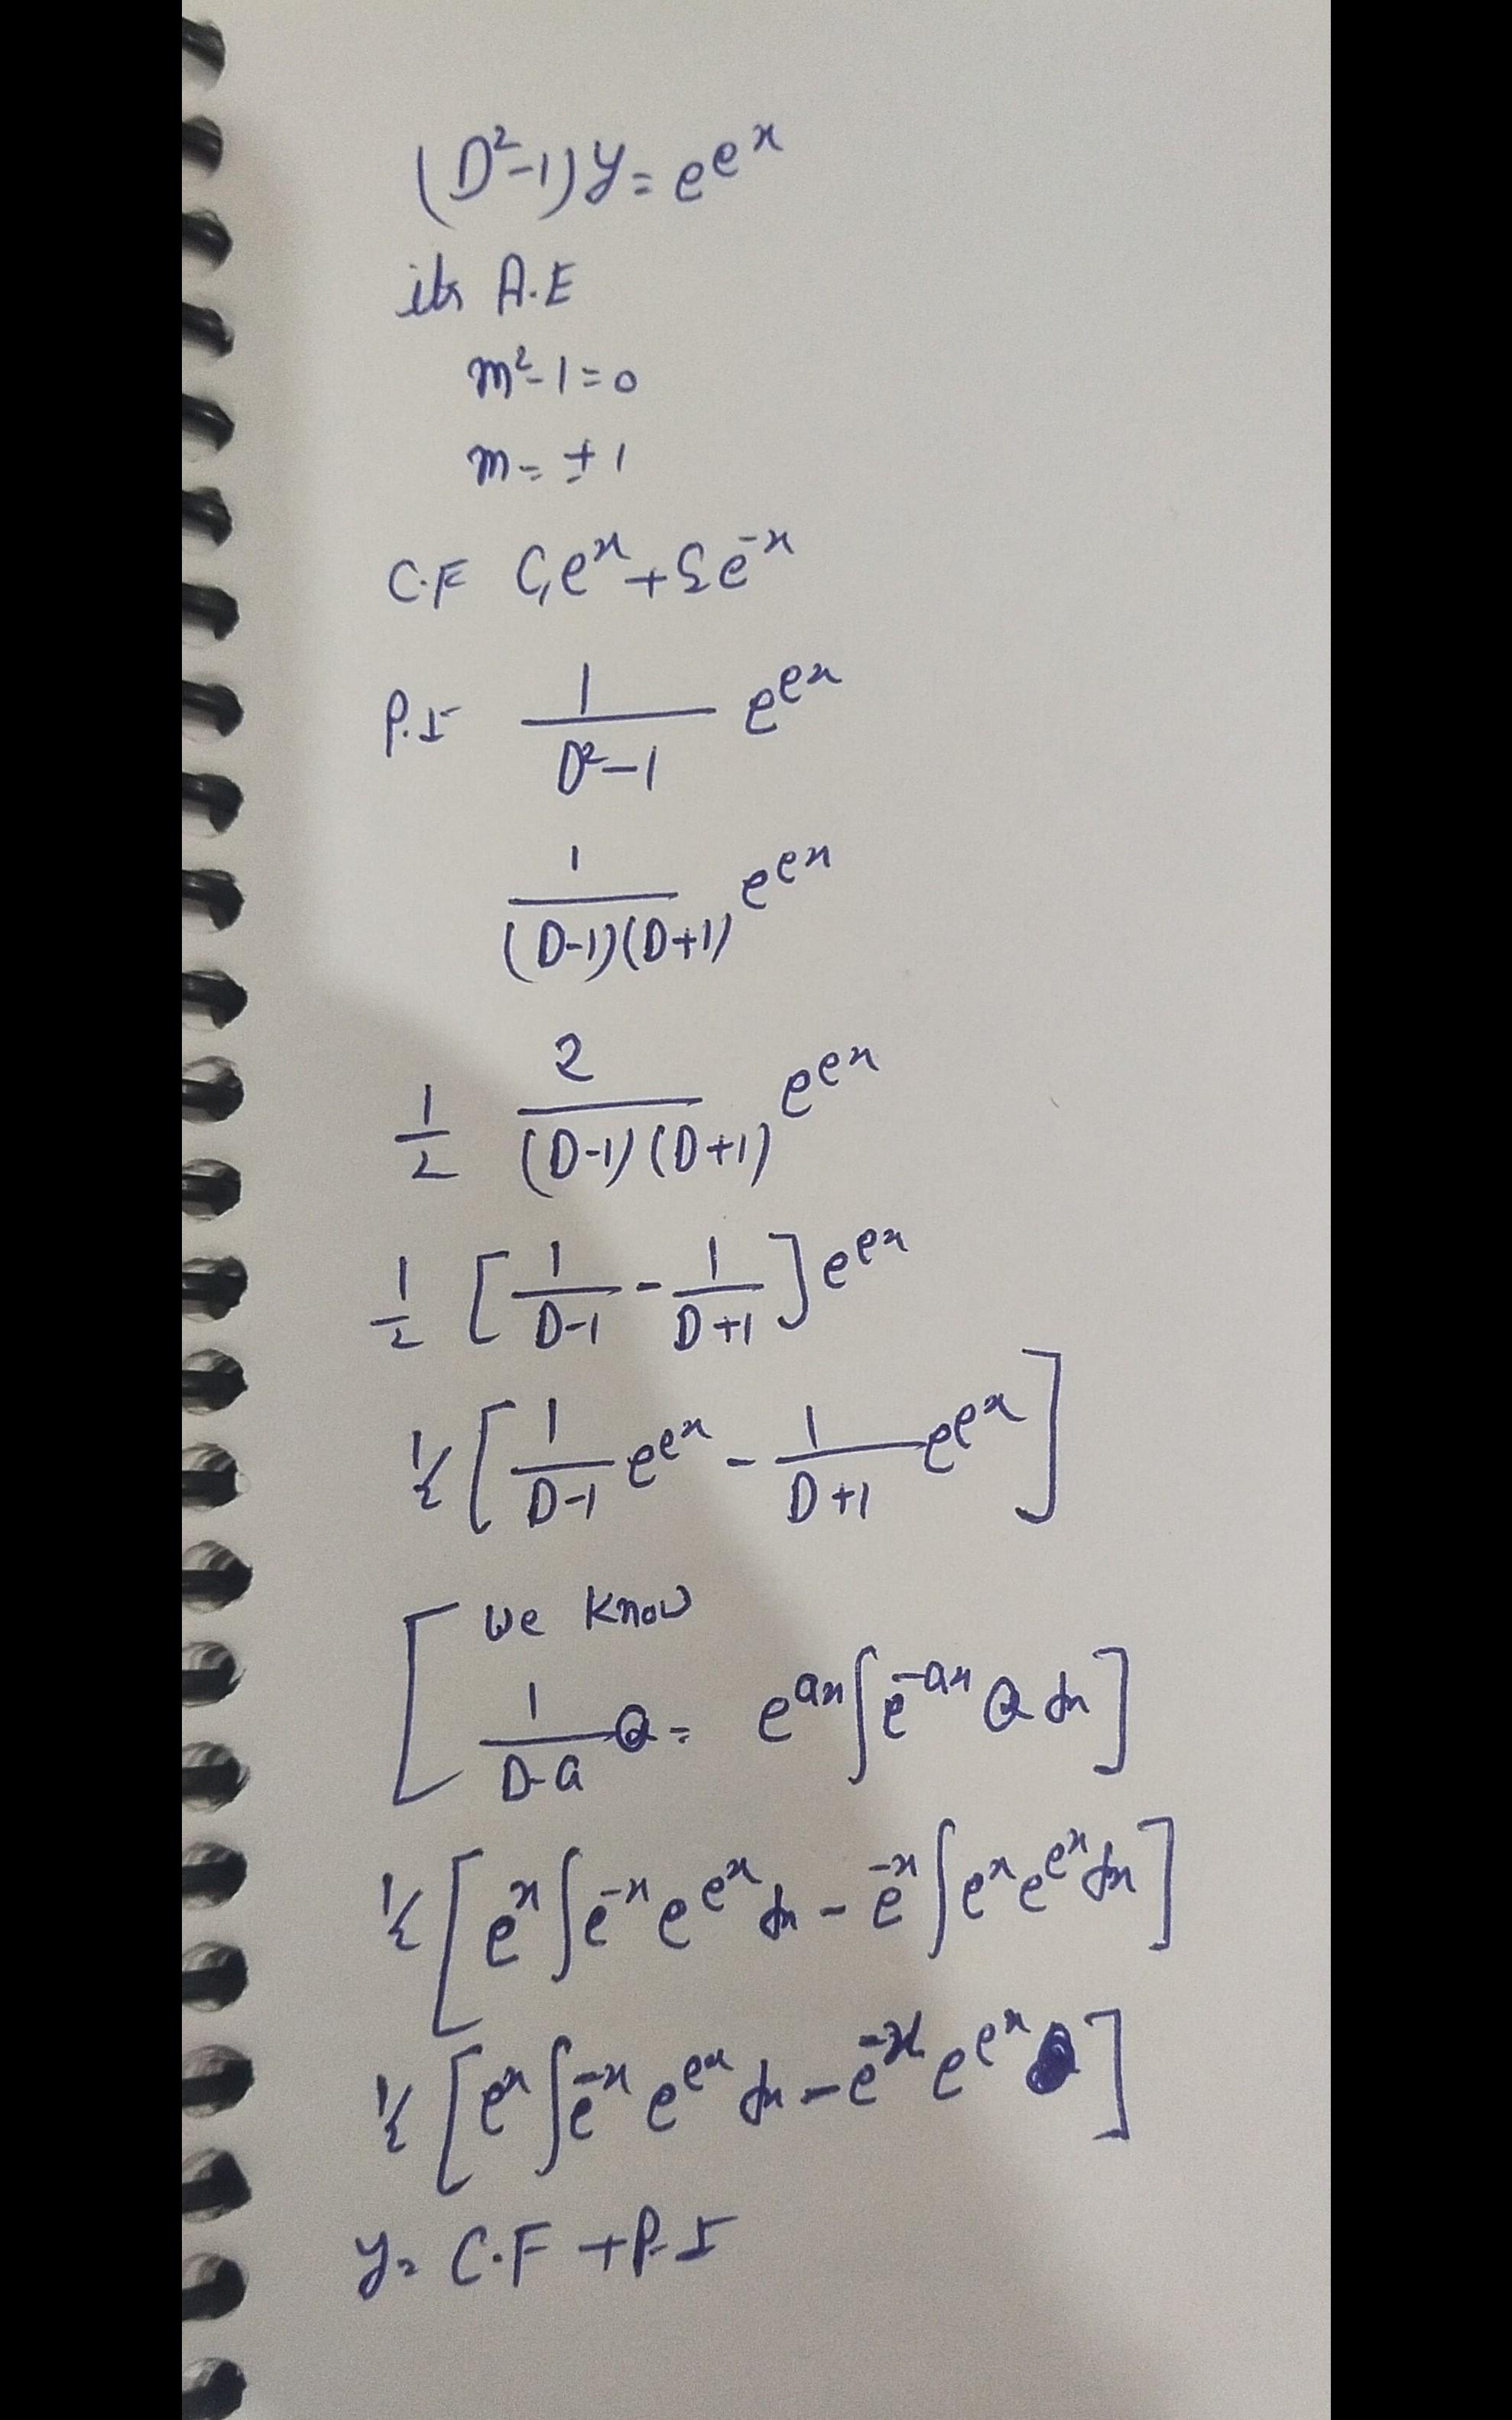 (D²-1)y = e^{e^x}
its A.E
m²-1=0
m = ±1
C.F C₁e^x + C₂e^{-x}
P.I \frac{1}{D²-1} e^{e^x}
\frac{1}{(D-1)(D+1)} e^{e^x}
\frac{1}{2} \frac{2}{(D-1)(D+1)} e^{e^x}
\frac{1}{2} [\frac{1}{D-1} - \frac{1}{D+1}] e^{e^x}
\frac{1}{2} [\frac{1}{D-1} e^{e^x} - \frac{1}{D+1} e^{e^x}]
[we know
\frac{1}{D-a} Q = e^{ax} ∫ e^{-ax} Q dx]
\frac{1}{2} [e^x ∫ e^{-x} e^{e^x} dx - e^{-x} ∫ e^x e^{e^x} dx]
\frac{1}{2} [e^x ∫ e^{-x} e^{e^x} dx - e^{-x} e^{e^x}]
y = C.F + P.I